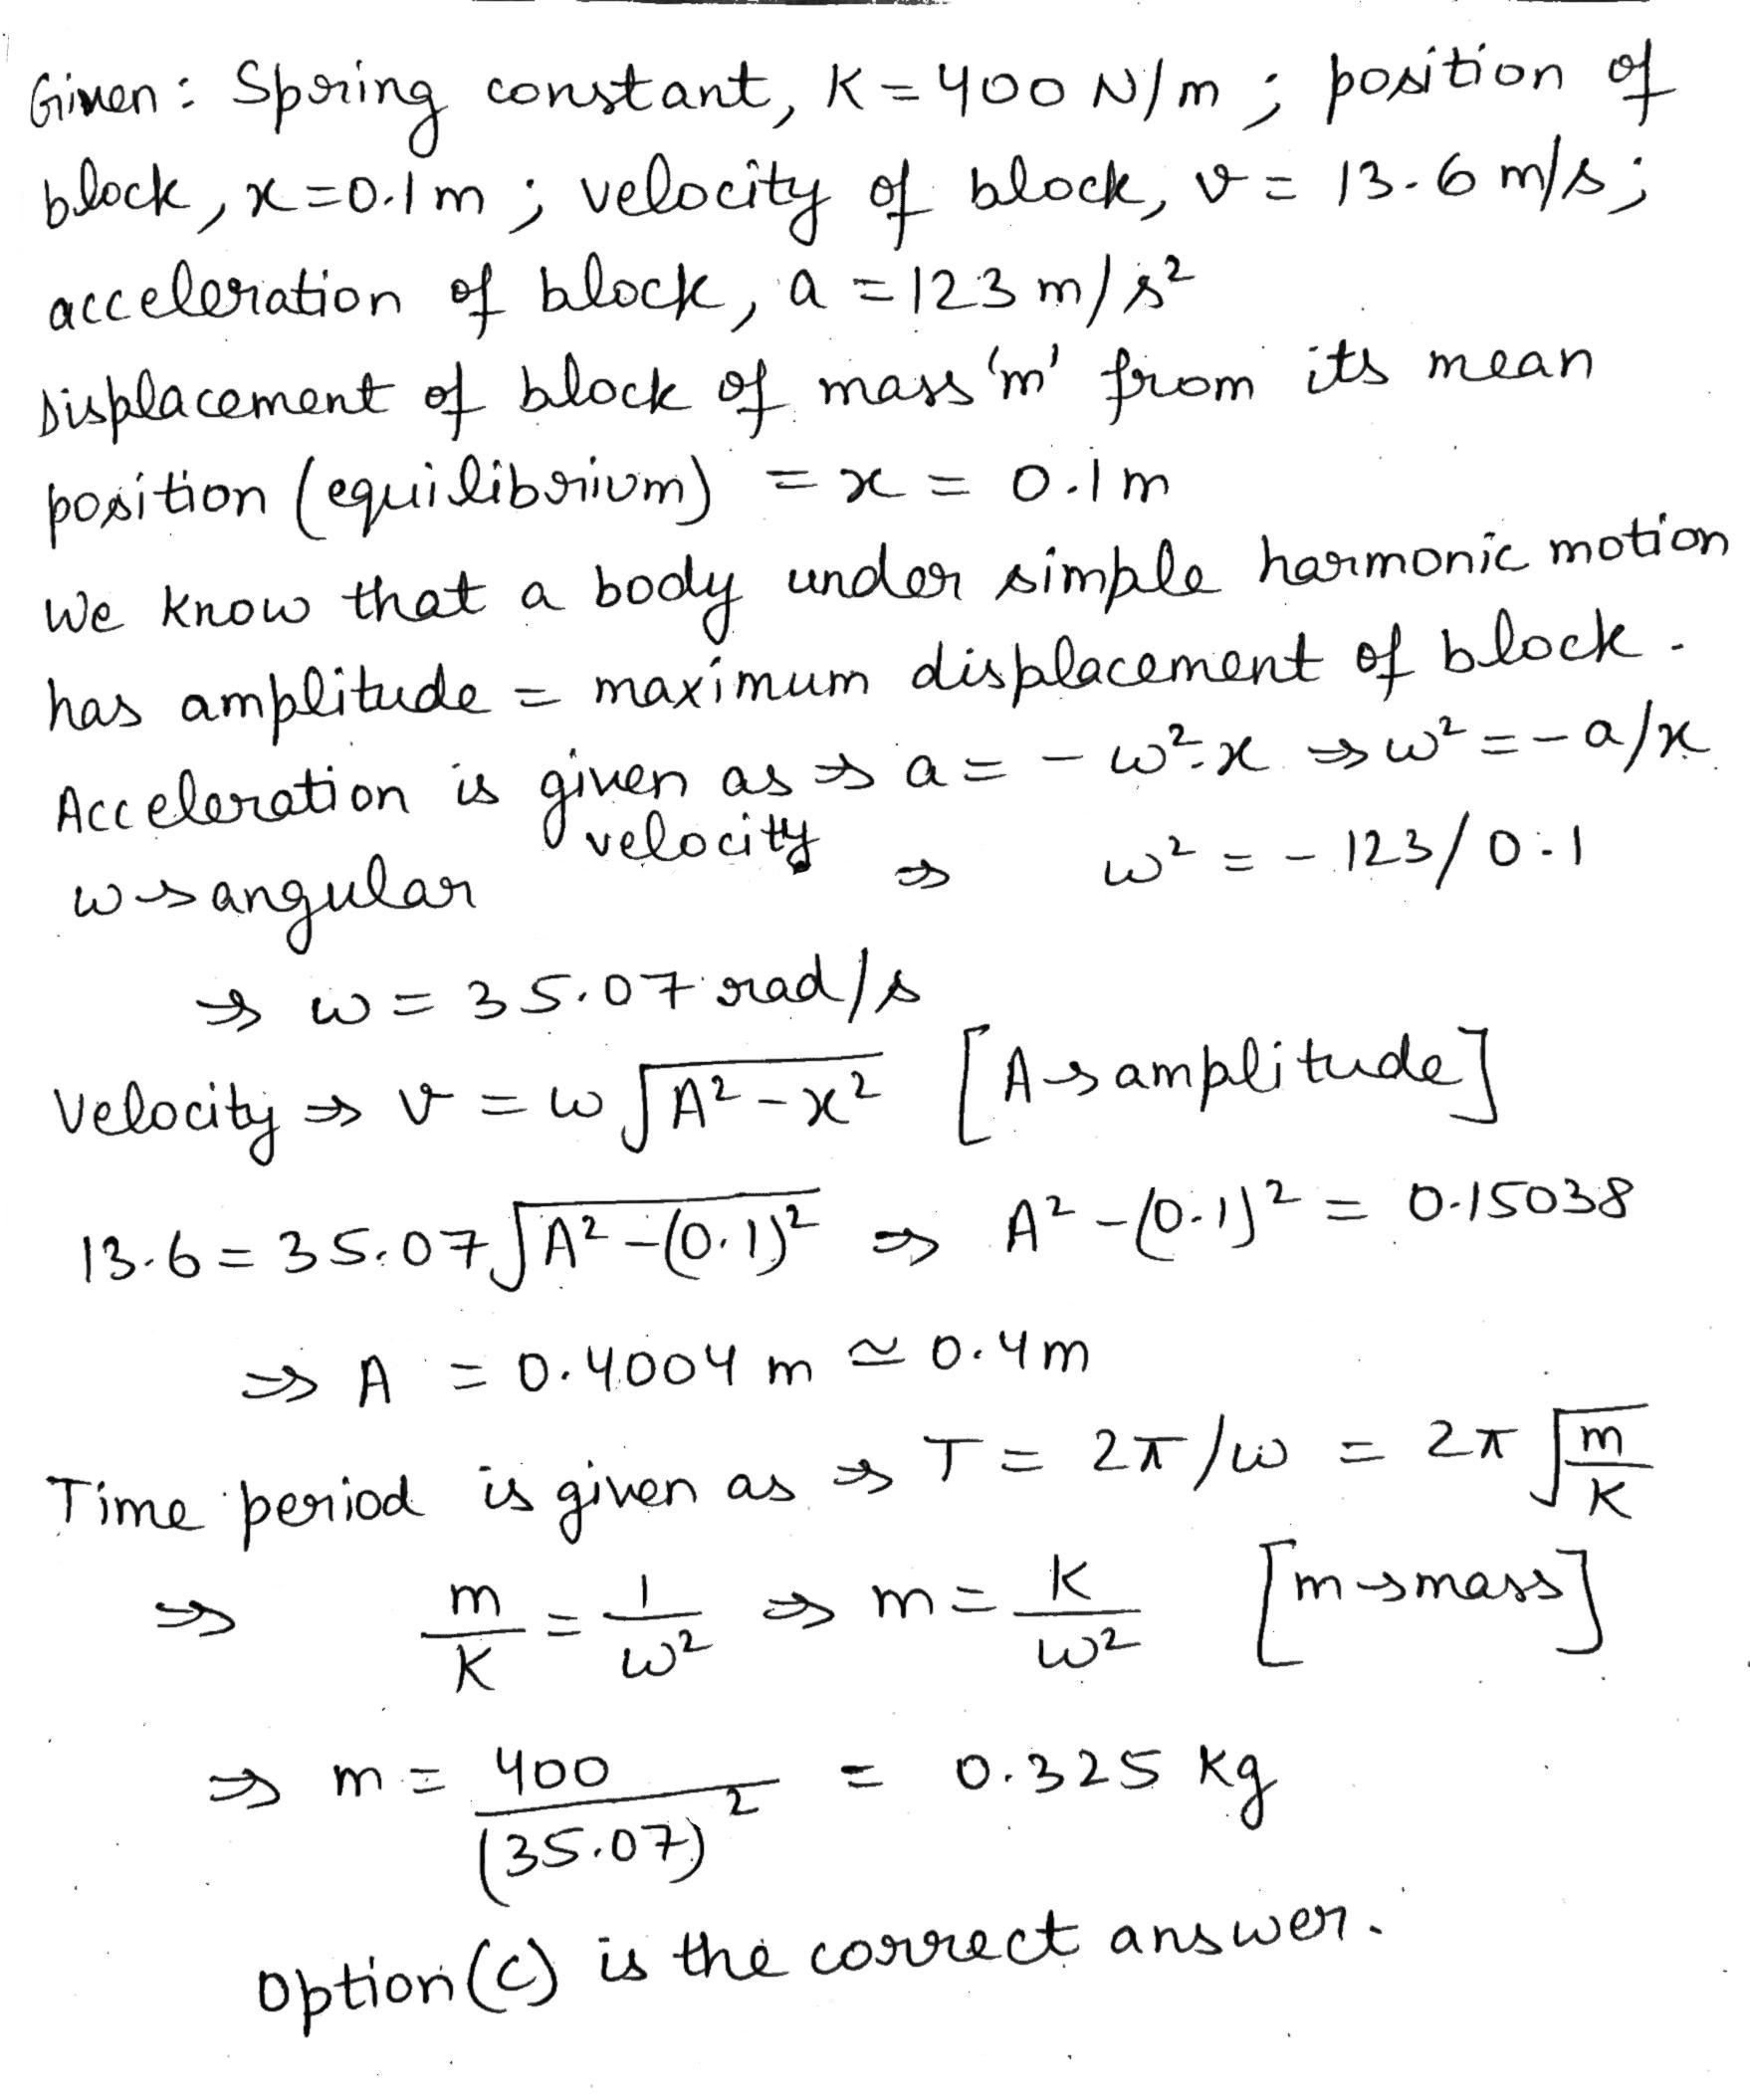 Given : Spring constant, K = 400 N/m ; position of
block, x = 0.1m ; velocity of block, v = 13.6 m/s ;
acceleration of block, a = 123 m/s²
Displacement of block of mass 'm' from its mean
position (equilibrium) = x = 0.1m
We know that a body under simple harmonic motion
has amplitude = maximum displacement of block.
Acceleration is given as ⇒ a = - ω²x ⇒ ω² = -a/x
ω → angular velocity ⇒ ω² = - 123/0.1
⇒ ω = 35.07 rad/s
Velocity ⇒ v = ω √(A² - x²) [A → amplitude]
13.6 = 35.07 √(A² - (0.1)²) ⇒ A² - (0.1)² = 0.15038
⇒ A = 0.4004 m ≃ 0.4m
Time period is given as ⇒ T = 2π/ω = 2π √(m/K)
⇒ m/K = 1/ω² ⇒ m = K/ω² [m → mass]
⇒ m = 400/(35.07)² = 0.325 kg
Option (C) is the correct answer.